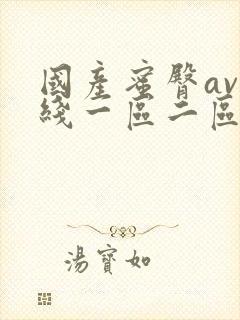 國產蜜臀av
綫一區二區
湯寶如